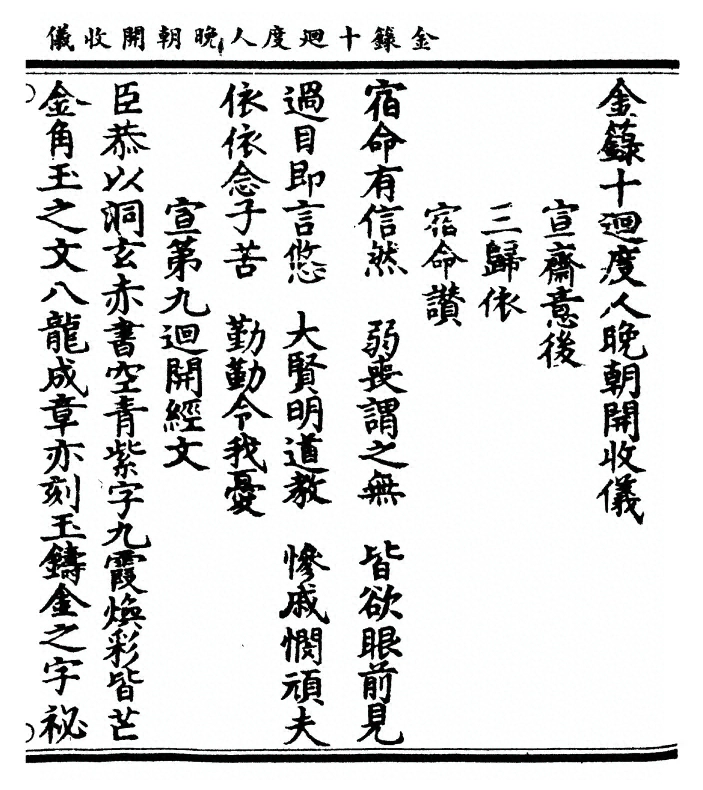 金籙十迴度人晚朝開收儀
金籙十迴度人晚朝開收儀
宣齋意後
三歸依
宿命讚
宿命有信然　弱喪謂之無　皆欲眼前見
過目即言悠　大賢明道教　慘戚憫頑夫
依依念子苦　勤勤令我憂
宣第九迴開經文
臣恭以洞玄赤書空青紫字九霞煥彩皆芒
金角玉之文八龍成章亦刻玉鑄金之字祕